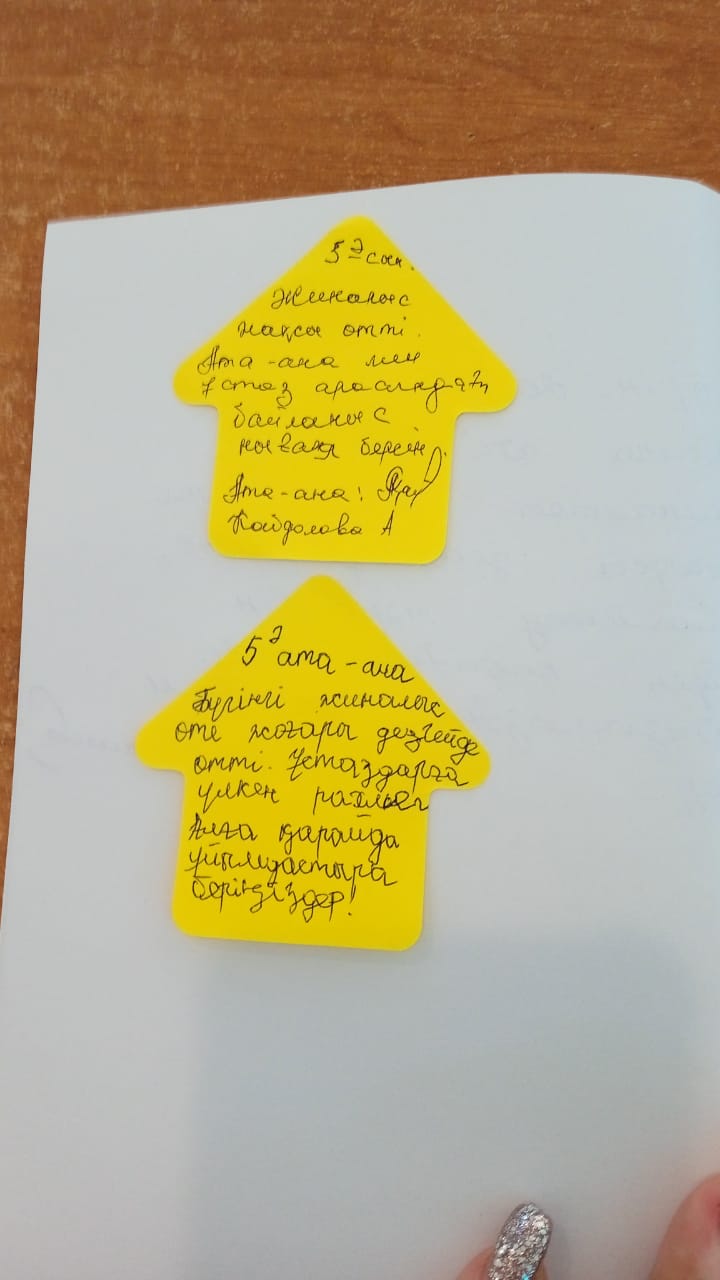 5 Ә сын.
Жиналыс
жақсы өтті.
Ата-ана мен
ұстаз арасындағы
байланыс
нығая берсін.
Ата-ана:
А
5 Ә ата-ана
Бүгінгі жиналыс
өте жоғары деңгейде
өтті. Ұстаздарға
үлкен рахмет
Алға қарайда
ұйымдастыра
беріңіздер!